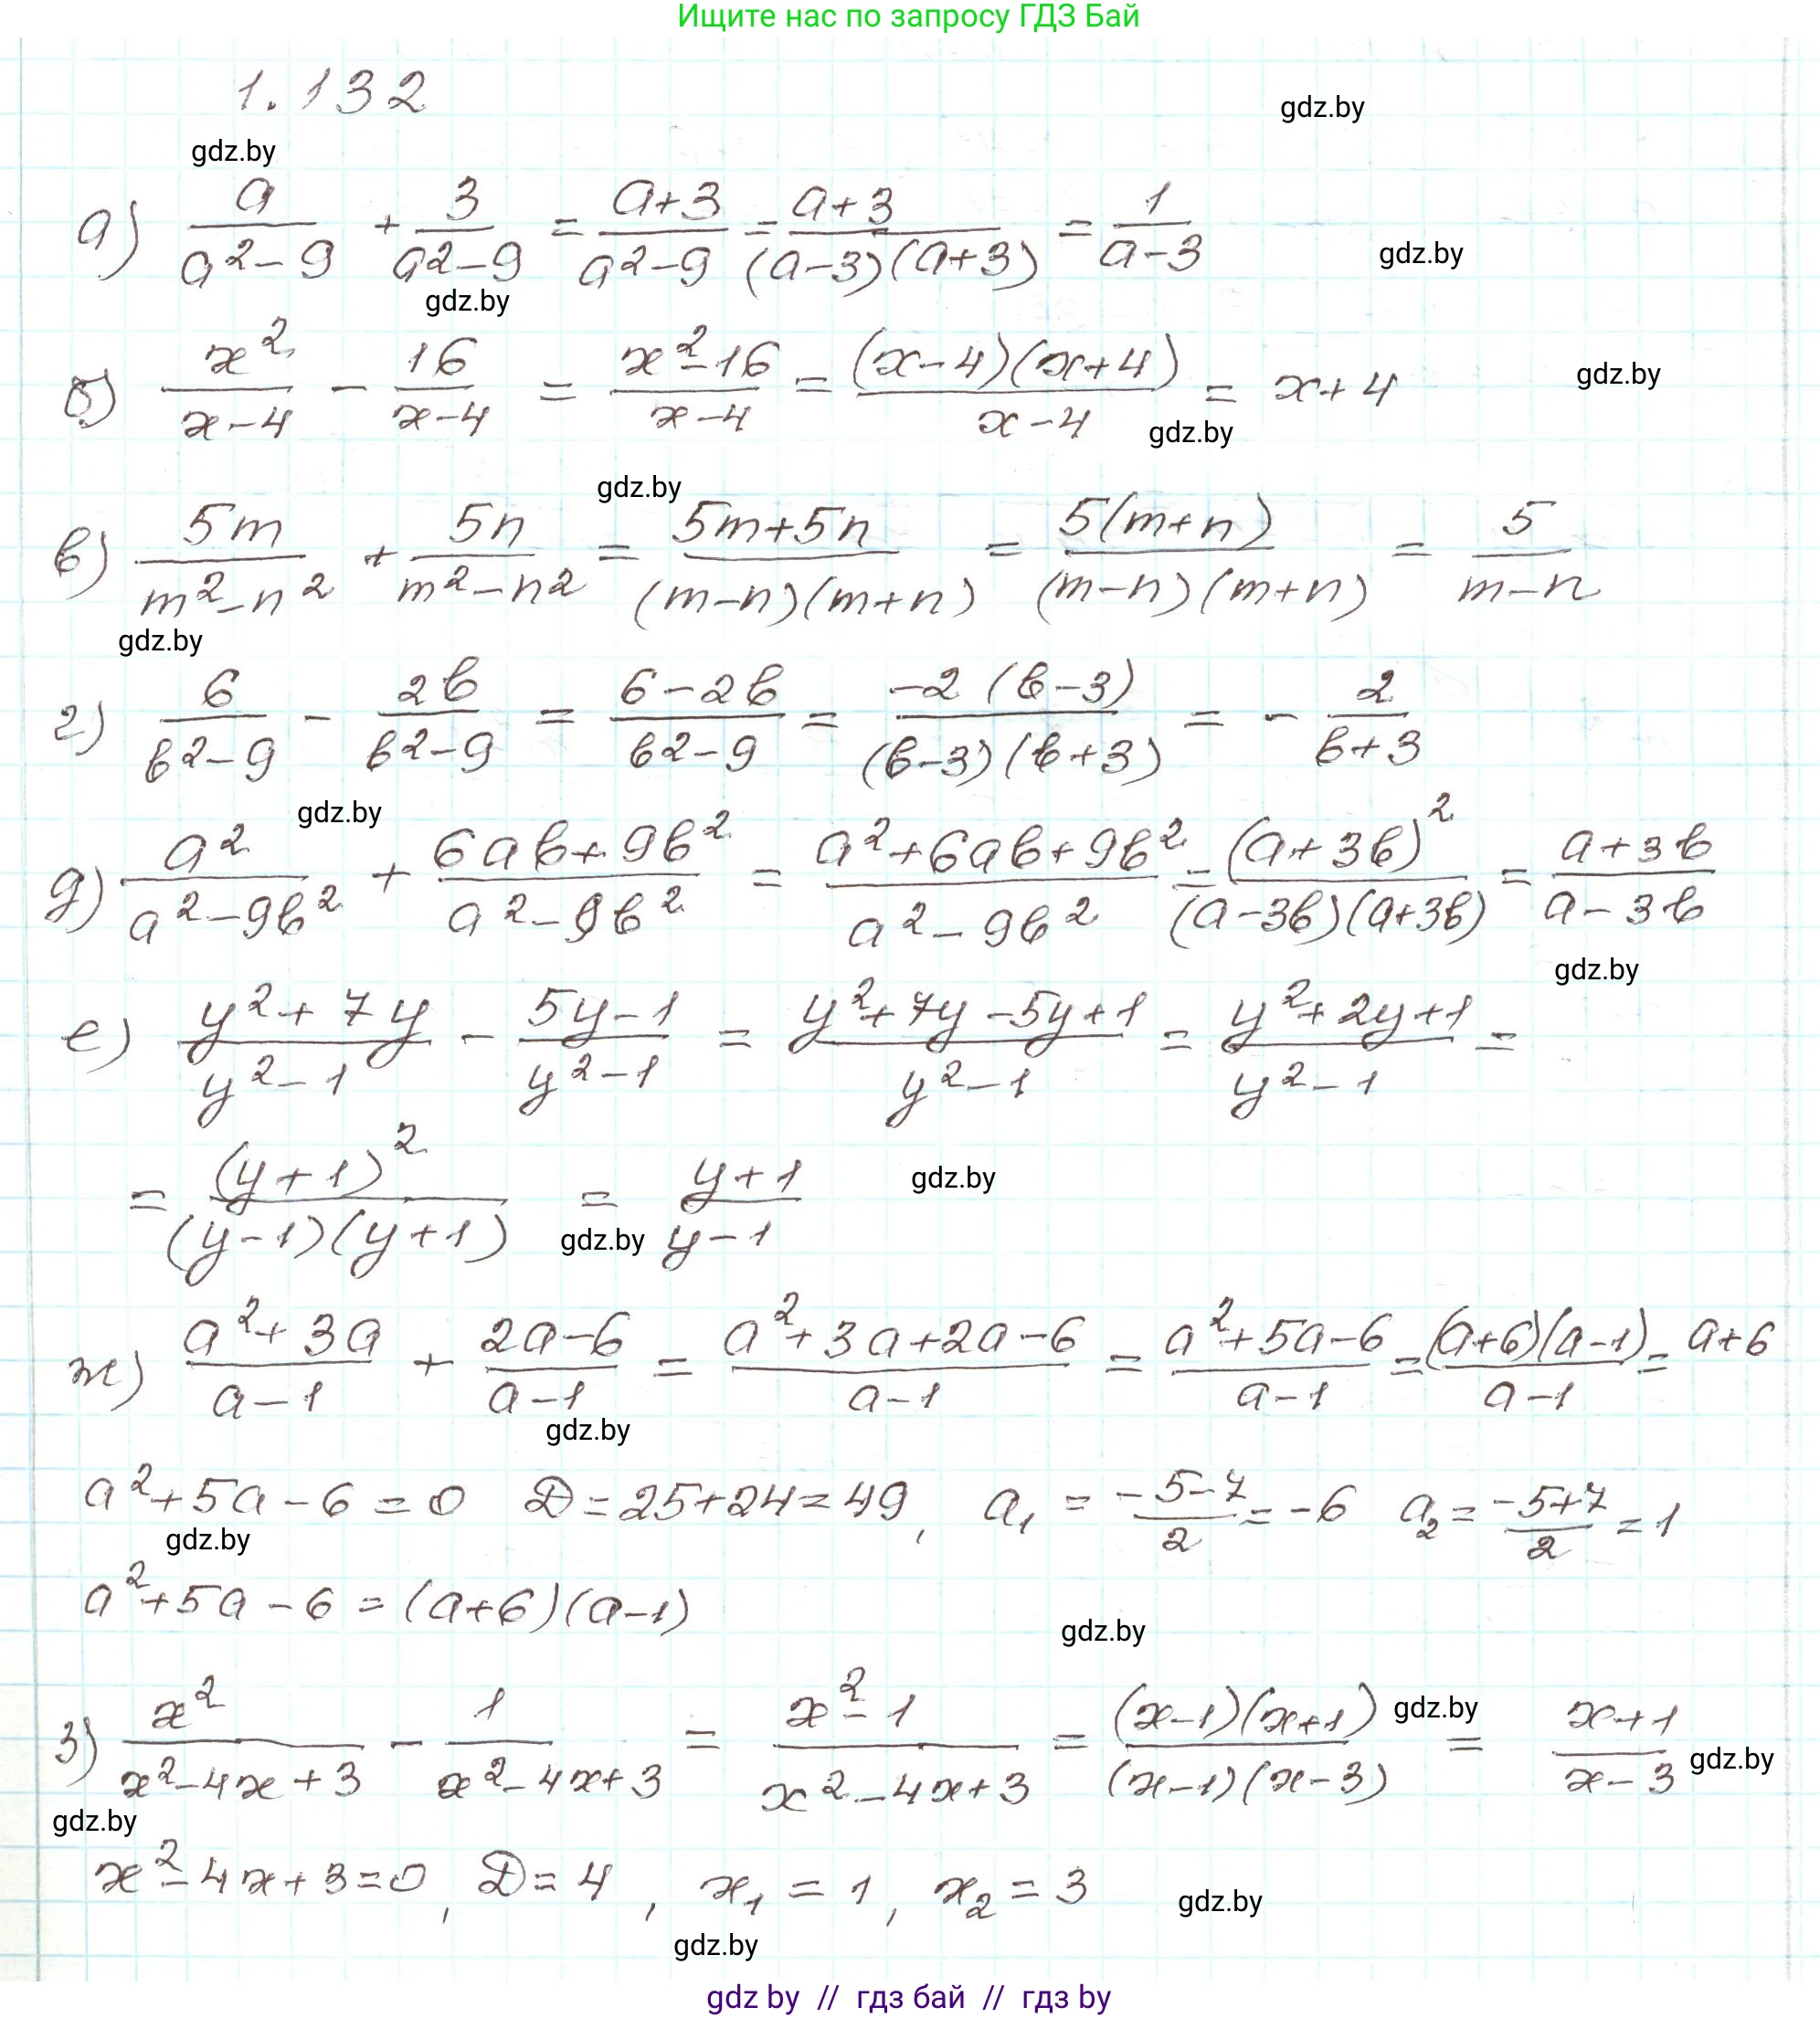 Ищите нас по запросу ГДЗ Бай
1.132
gdz.by
gdz.by
а) a/(a²-9) + 3/(a²-9) = (a+3)/(a²-9) = (a+3)/((a-3)(a+3)) = 1/(a-3)
gdz.by
gdz.by
б) x²/(x-4) - 16/(x-4) = (x²-16)/(x-4) = ((x-4)(x+4))/(x-4) = x+4
gdz.by
gdz.by
gdz.by
в) 5m/(m²-n²) + 5n/(m²-n²) = (5m+5n)/((m-n)(m+n)) = 5(m+n)/((m-n)(m+n)) = 5/(m-n)
gdz.by
г) 6/(b²-9) - 2b/(b²-9) = (6-2b)/(b²-9) = -2(b-3)/((b-3)(b+3)) = - 2/(b+3)
gdz.by
д) a²/(a²-9b²) + (6ab+9b²)/(a²-9b²) = (a²+6ab+9b²)/(a²-9b²) = (a+3b)²/((a-3b)(a+3b)) = (a+3b)/(a-3b)
gdz.by
е) (y²+7y)/(y²-1) - (5y-1)/(y²-1) = (y²+7y-5y+1)/(y²-1) = (y²+2y+1)/(y²-1) =
= (y+1)²/((y-1)(y+1)) = (y+1)/(y-1)
gdz.by
gdz.by
ж) (a²+3a)/(a-1) + (2a-6)/(a-1) = (a²+3a+2a-6)/(a-1) = (a²+5a-6)/(a-1) = ((a+6)(a-1))/(a-1) = a+6
gdz.by
a²+5a-6=0 D=25+24=49, a₁ = (-5-7)/2 = -6 a₂ = (-5+7)/2 = 1
gdz.by
a²+5a-6=(a+6)(a-1)
gdz.by
з) x²/(x²-4x+3) - 1/(x²-4x+3) = (x²-1)/(x²-4x+3) = ((x-1)(x+1))/((x-1)(x-3)) = (x+1)/(x-3)
gdz.by
gdz.by
gdz.by
x²-4x+3=0, D=4, x₁=1, x₂=3
gdz.by
gdz.by
gdz by // гдз бай // гдз by